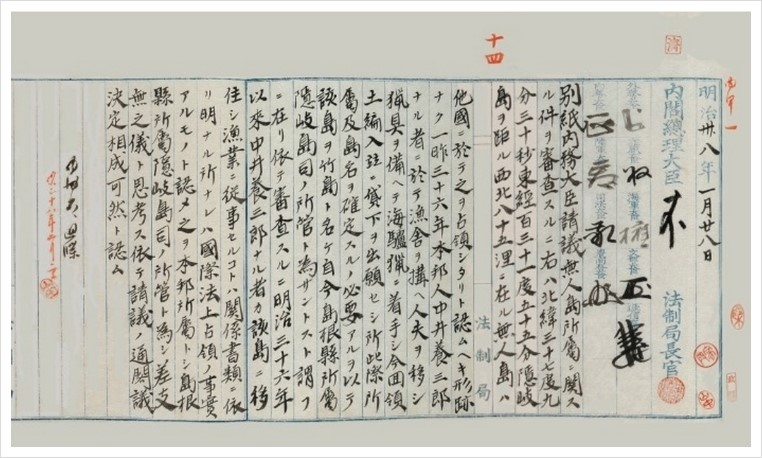 十四
明治卅八年一月廿八日
内閣總理大臣
法制局長官
別紙内務大臣請議無人島所屬ニ關ス
ル件ヲ審査スルニ右ハ北緯三十七度九
分三十秒東經百三十一度五十五分隠岐
島ヲ距ル西北八十五浬ニ在ル無人島ハ
他國ニ於テ之ヲ占領シタリト認ムヘキ形跡
ナク一昨三十六年本邦人中井養三郎
ナル者ニ於テ漁舎ヲ構ヘ人夫ヲ移シ
猟具ヲ備ヘテ海驢猟ニ着手シ今回領
土編入並ニ貸下ヲ出願セシ所此際所
屬及島名ヲ確定スルノ必要アルヲ以テ
該島ヲ竹島ト名ケ自今島根縣所屬
隠岐島司ノ所管ト為サントスト謂フ
ニ在リ依テ審査スルニ明治三十六年
以来中井養三郎ナル者カ該島ニ移
住シ漁業ニ從事セルコトハ関係書類ニ依
リ明ナル所ナレハ國際法上占領ノ事實
アルモノト認メ之ヲ本邦所屬トシ島根
縣所屬隠岐島司ノ所管ト為シ差支
無之儀ト思考ス依テ請議ノ通閣議
決定相成可然ト認ム
法制局